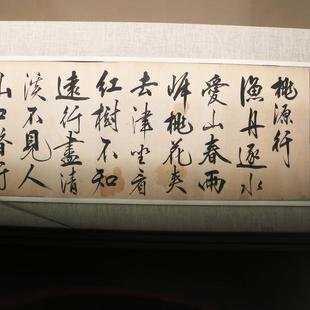 桃源行
漁舟逐水
愛山春兩
岸桃花夾
去津坐看
紅樹不知
遠行盡清
溪不見人
山口潛行